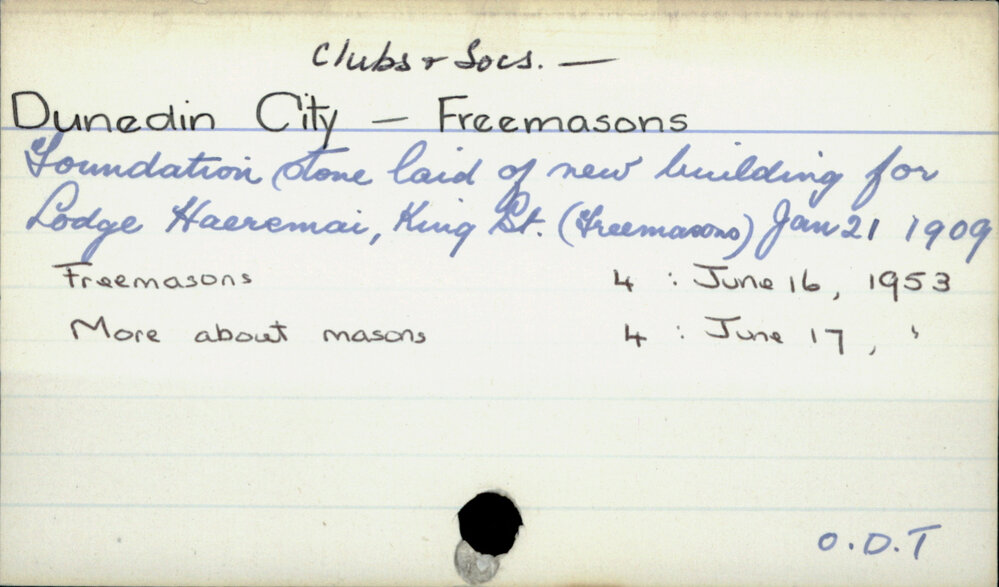 Clubs & Socs. —
Dunedin City — Freemasons
Foundation stone laid of new building for
Lodge Haeremai, King St. (Freemasons) Jan 21 1909
Freemasons 4 : June 16, 1953
More about masons 4 : June 17, '
O.D.T